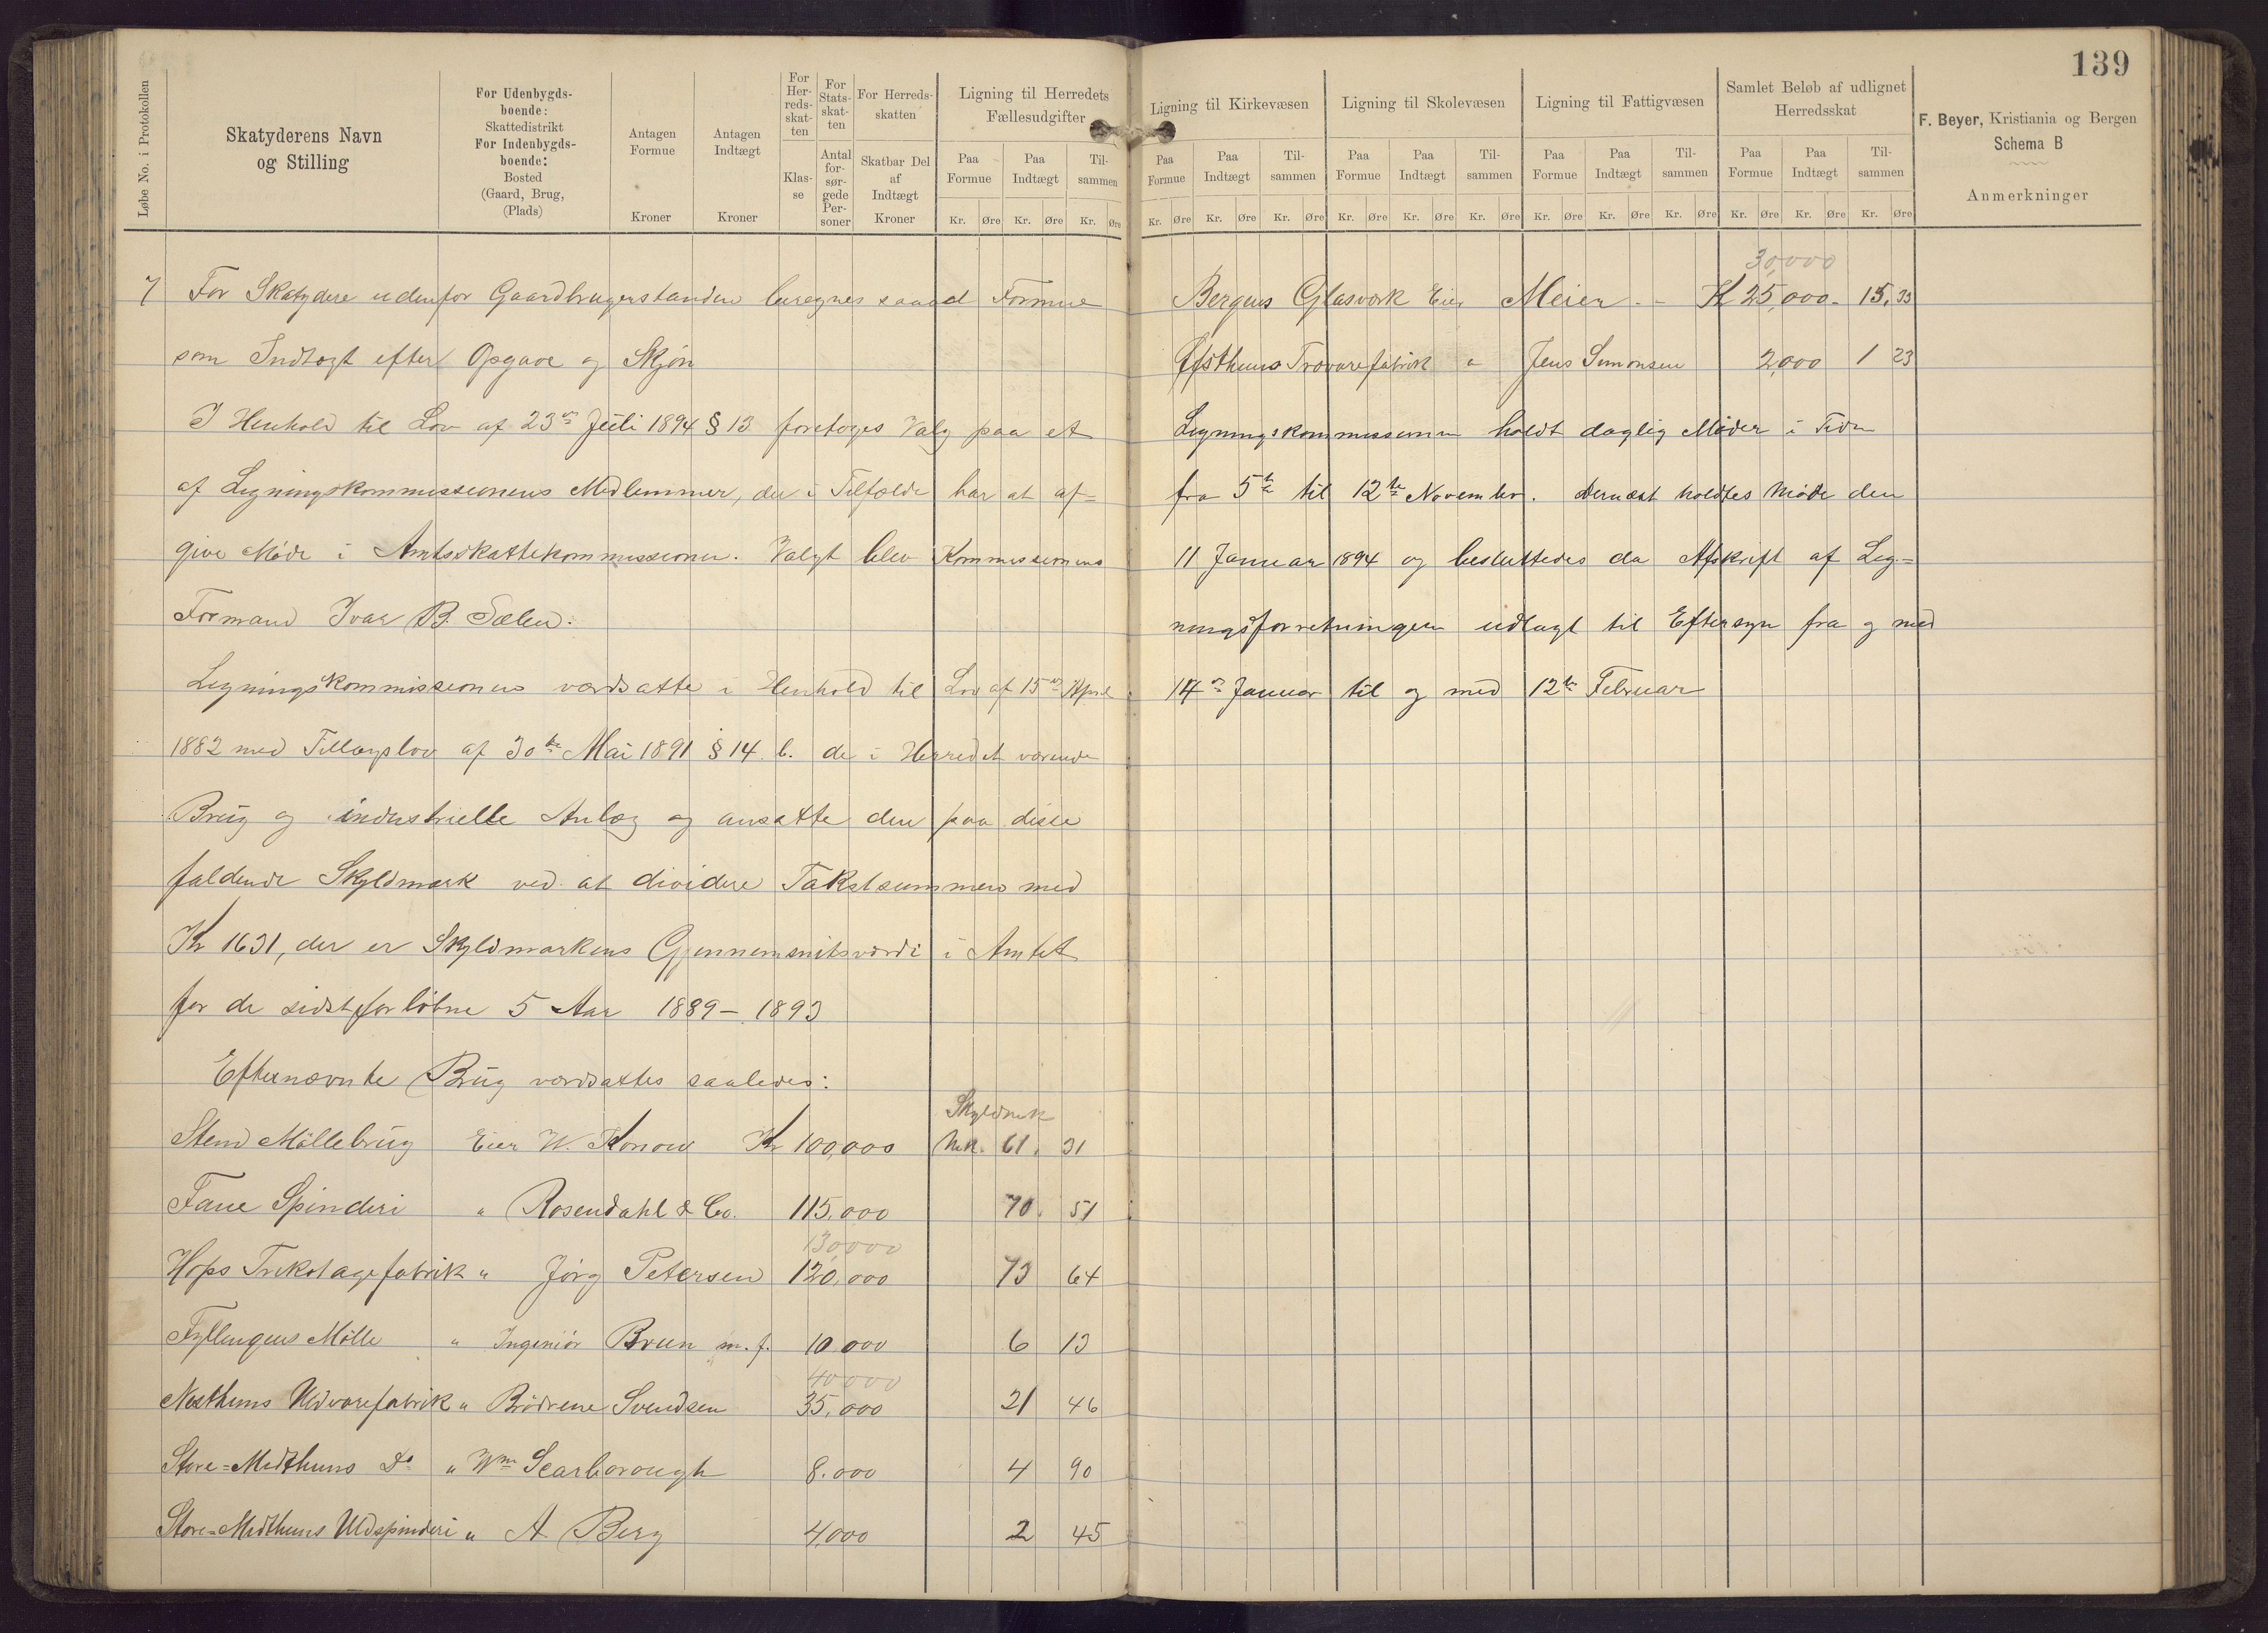 139
Løbe No. i Protokollen
Skatyderens Navn
og Stilling
For Udenbygds-
boende:
Skattedistrikt
For Indenbygds-
boende:
Bosted
(Gaard, Brug,
(Plads)
Antagen
Formue
Kroner
Antagen
Indtægt
Kroner
For
Her-
reds-
skat-
ten
Klas-
se
For
Stats-
skat-
ten
Antal
for-
sør-
gede
Per-
soner
For Herreds-
skatten
Skatbar Del
af
Indtægt
Kroner
Ligning til Herredets
Fællesudgifter
Paa Formue Paa Indtægt Til-sammen
Kr. Øre Kr. Øre Kr. Øre
7 For Skatydere udenfor Gaardbrugerstanden beregnes saavel Formue
som Indtægt efter Opgave og Skjøn
I Henhold til Lov af 23de Juli 1894 § 13 foretoges Valg paa et
af Ligningskommissionens Medlemmer, der i Tilfælde har at af=
give Møde i Amtsskattekommissionen. Valgt blev Kommissionens
Formand Ivar B. Sælen.
Ligningskommissionen værdsatte i Henhold til Lov af 15de April
1882 med Tillægslov af 30te Mai 1891 § 14 b. de i Herredet værende
Brug og industrielle Anlæg og ansatte den paa disse
faldende Skyldmark ved at dividere Takstsummen med
Kr 1631, der er Skyldmarkens Gjennemsnitsværdi i Amtet
for de sidstforløbne 5 Aar 1889 – 1893
Efternævnte Brug værdsattes saaledes:
Skyldmk
Stend Møllebrug Eier W. Konow Kr 100,000 Mk. 61. 31
Fane Spinderi " Rosendahl & Co. 115,000 70. 51
130,000
Hops Trikotagefabrik " Jørg Petersen 120,000 73 64
Fyllingens Mølle " Ingeniør Brun m. f. 10 000 6 13
40000
Nesthuns Uldvarefabrik " Brødrene Svendsen 35,000 21 46
Store=Midthuns Do " Wm Scarborough 8.000 4 90
Store=Midthuns Uldspinderi " A Berg 4,000 2 45
Ligning til Kirkevæsen
Paa Formue Paa Indtægt Til-sammen
Kr. Øre Kr. Øre Kr. Øre
Ligning til Skolevæsen
Paa Formue Paa Indtægt Til-sammen
Kr. Øre Kr. Øre Kr. Øre
Ligning til Fattigvæsen
Paa Formue Paa Indtægt Til-sammen
Kr. Øre Kr. Øre Kr. Øre
Samlet Beløb af udlignet
Herredsskat
Paa Formue Paa Indtægt Til-sammen
Kr. Øre Kr. Øre Kr. Øre
F. Beyer, Kristiania og Bergen
Schema B
Anmerkninger
30,000
Bergens Glasværk Eier Meier – – K 25,000 – 15. 33
Øfsthuns Trævarefabrik " Jens Simonsen 2,000 1 23
Ligningskommissionen holdt daglig Møder i Tiden
fra 5te til 12te November. Dernæst holdtes Møde den
11 Januar 1894 og besluttedes da Afskrift af Lig-=
ningsforretningen udlagt til Eftersyn fra og med
14de Januar til og med 12te Februar